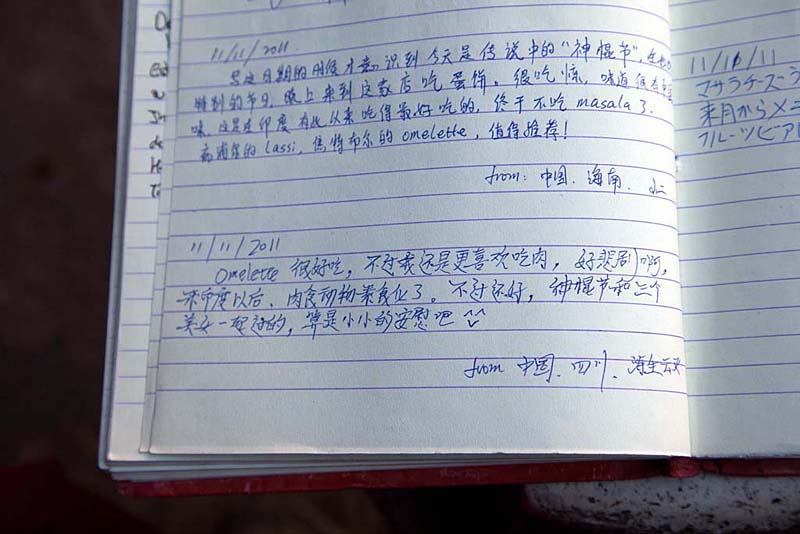 11/11/2011
写这日期的时候才意识到今天是传说中的"神棍节",
特别的节日,晚上来到这家店吃蛋饼,很吃惊,味道很
味,这是在印度有史以来吃得最好吃的,终于不吃masala了.
的lassi,焦特布尔的omelette,值得推荐!
from: 中国.海南.
11/11/2011
Omelette 很好吃,不过我还是更喜欢吃肉,好悲剧啊,
来印度以后,肉食动物素食化了.不过还好,神棍节和三个
美女一起过的,算是小小的安慰吧 ^^
from 中国.四川.
11/16/11
マサラチーズ
来月からメニ
フルーツビア